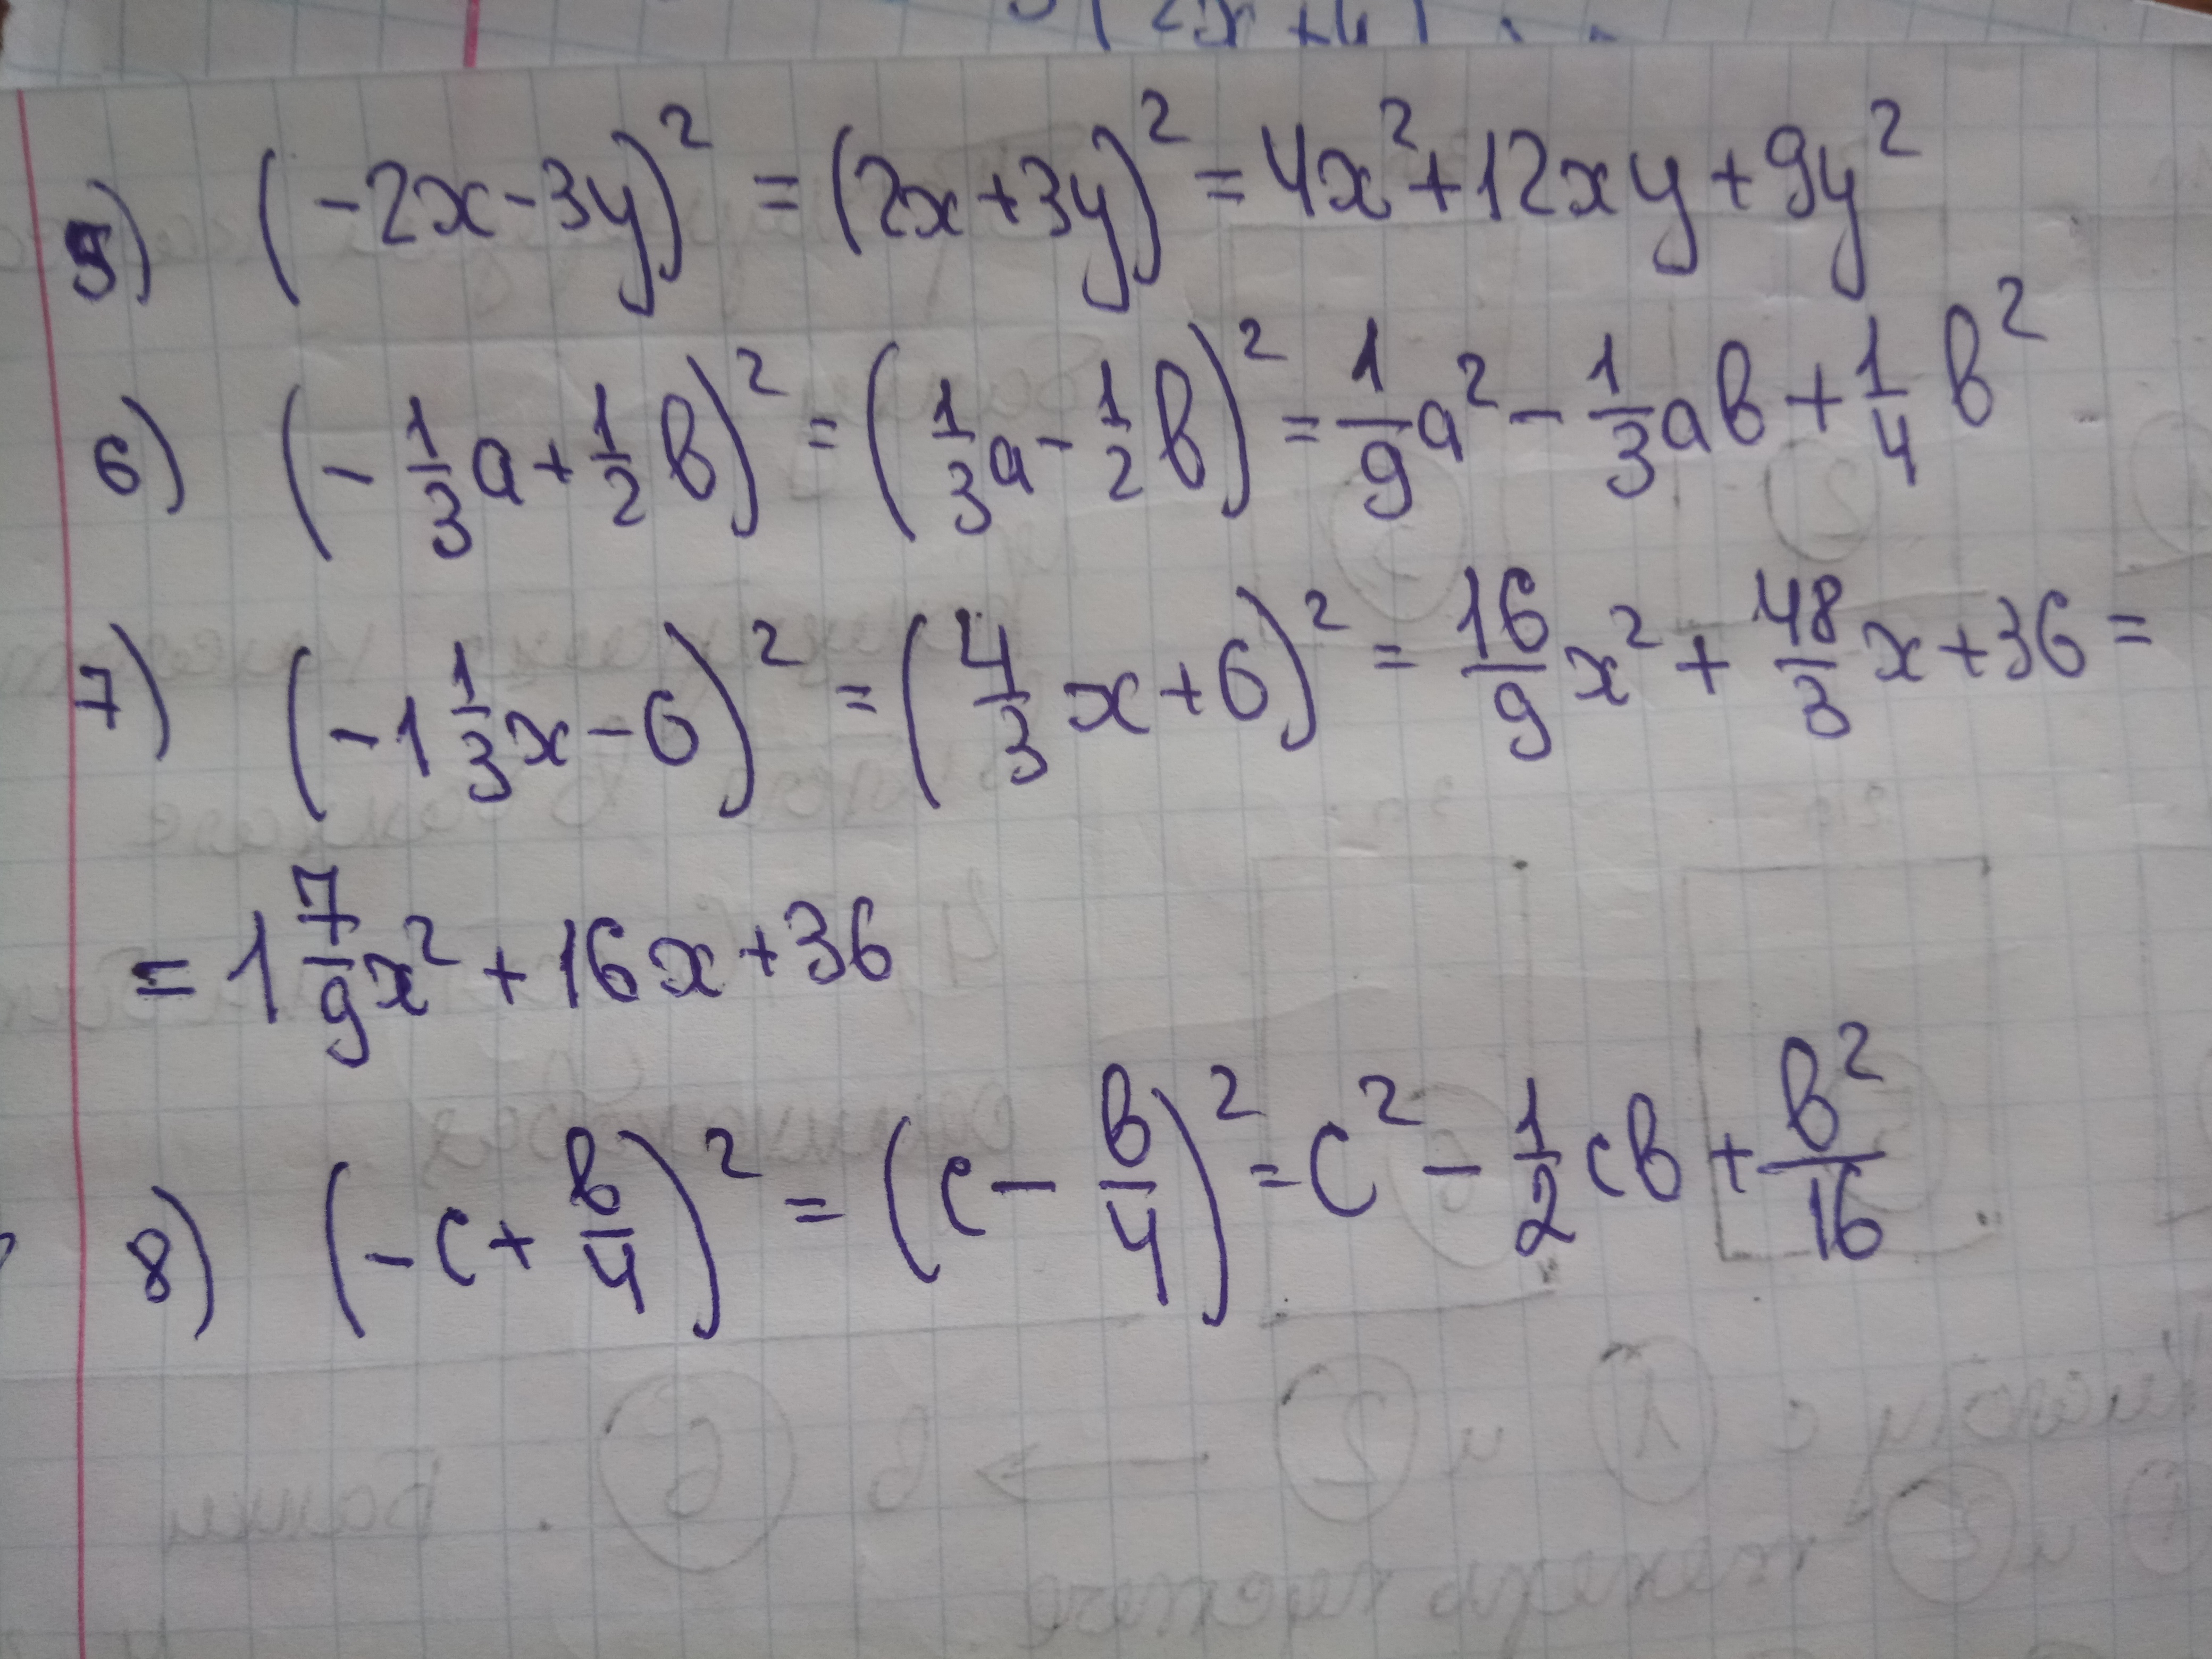 5) (-2x-3y)² = (2x+3y)² = 4x²+12xy+9y²
6) (-1/3a+1/2в)² = (1/3a-1/2в)² = 1/9a² - 1/3aв + 1/4 в²
7) (-1 1/3x-6)² = (4/3x+6)² = 16/9x² + 48/3x+36 =
= 1 7/9x² + 16x+36
8) (-c+в/4)² = (c-в/4)² = c² - 1/2cв + в²/16